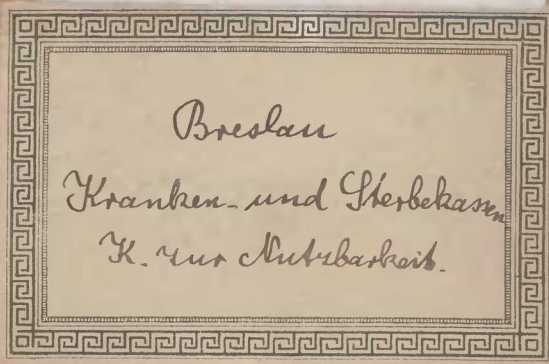 Breslau
Kranken- und Sterbekassen
K. zur Nutzbarkeit.